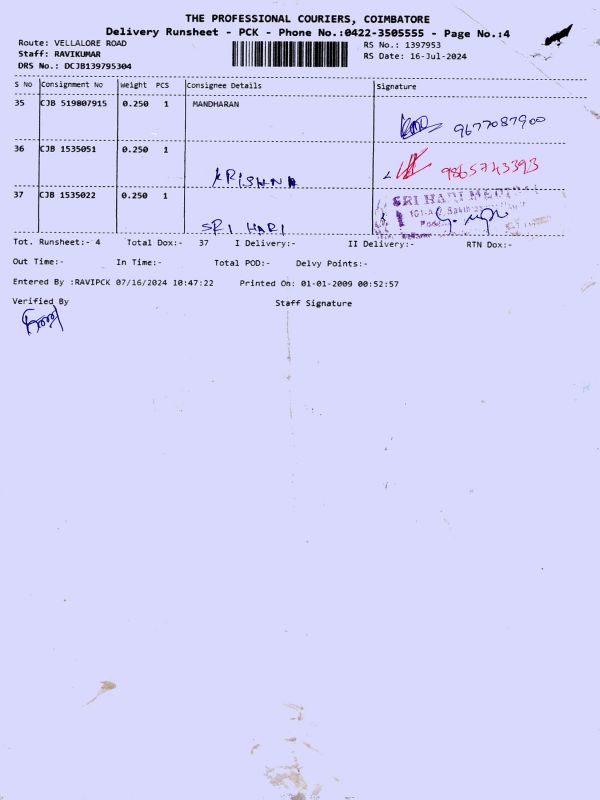 THE PROFESSIONAL COURIERS, COIMBATORE
Delivery Runsheet - PCK - Phone No.:0422-3505555 - Page No.:4
Route: VELLALORE ROAD
RS No.: 1397953
Staff: RAVIKUMAR
RS Date: 16-Jul-2024
DRS No.: DCJB139795304
S No Consignment No Weight PCS Consignee Details Signature
35 CJB 519807915 0.250 1 MANDHARAN
9677087900
36 CJB 1535051 0.250 1
KRISHNA 9865743393
37 CJB 1535022 0.250 1
SRI HARI
SRI HARI
Tot. Runsheet:- 4 Total Dox:- 37 I Delivery:- II Delivery:- RTN Dox:-
Out Time:- In Time:- Total POD:- Delvy Points:-
Entered By :RAVIPCK 07/16/2024 10:47:22 Printed On: 01-01-2009 00:52:57
Verified By Staff Signature